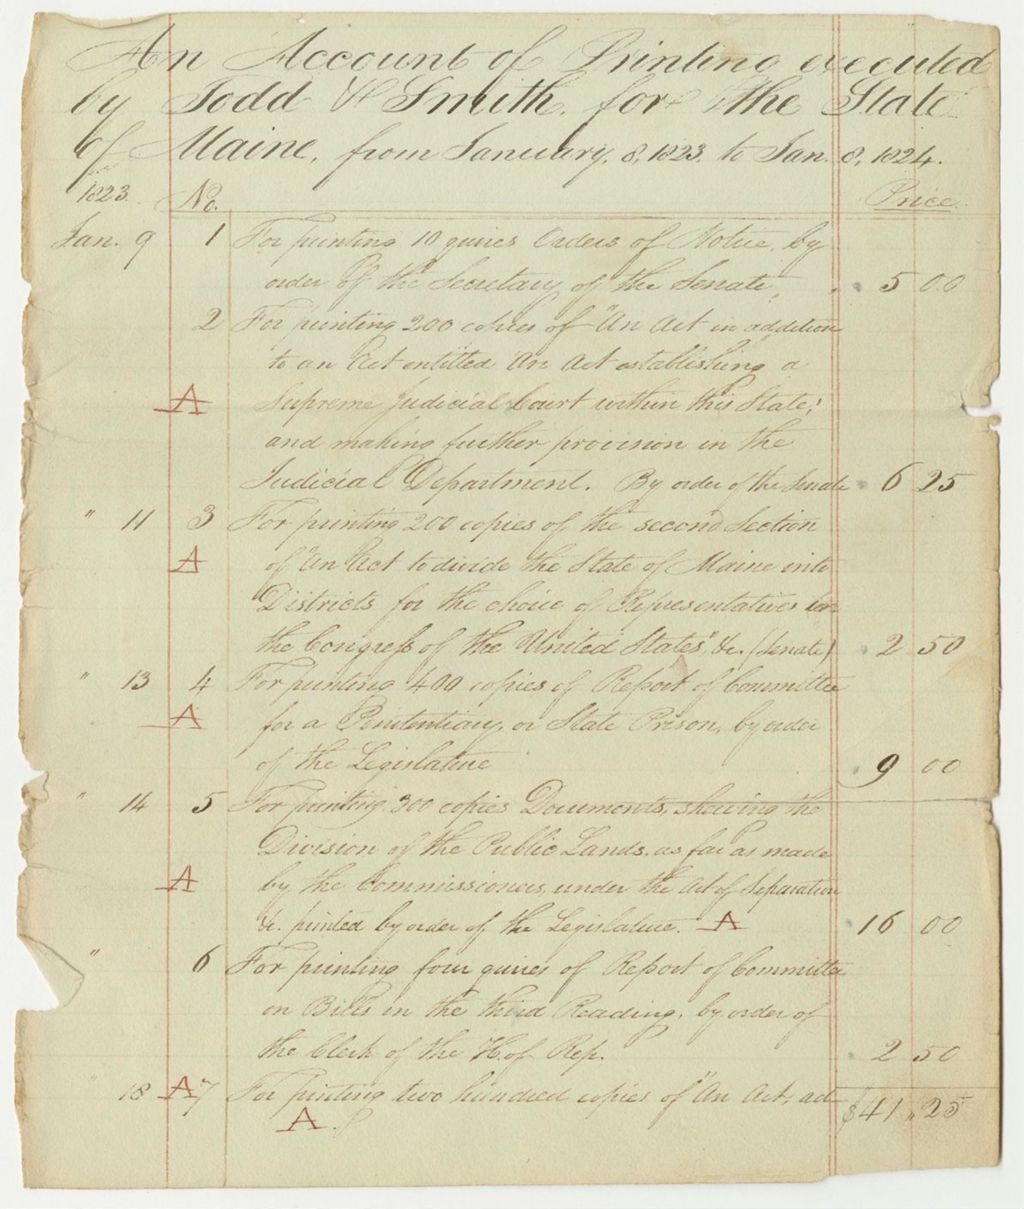 An Account of Printing executed
by Todd & Smith, for the State
of Maine, from January, 8, 1823. to Jan. 8, 1824.
1823. No. Price.
Jan. 9 1 For printing 10 quires Orders of Notice, by
order of the Secretary of the Senate, 5 00
2 For printing 200 copies of "An Act in addition
to an Act entitled An Act establishing a
A Supreme Judicial Court within this State;
and making further provision in the
Judicial Department. By order of the Senate 6 25
" 11 3 For printing 200 copies of the second Section
A of "An Act to divide the State of Maine into
Districts for the choice of Representatives in
the Congress of the United States", &c. (Senate) 2 50
" 13 4 For printing 400 copies of Report of Committee
A for a Penitentiary, or State Prison, by order
of the Legislature 9 00
" 14 5 For printing 300 copies Documents, shewing the
Division of the Public Lands, as far as made
A by the Commissioners under the Act of Separation
&c. printed by order of the Legislature. A 16 00
" 6 For printing four quires of Report of Committee
on Bills in the third Reading, by order of
the Clerk of the H. of Rep. 2 50
" 18 A 7 For printing two hundred copies of "An Act, ad-
A $41 " 25